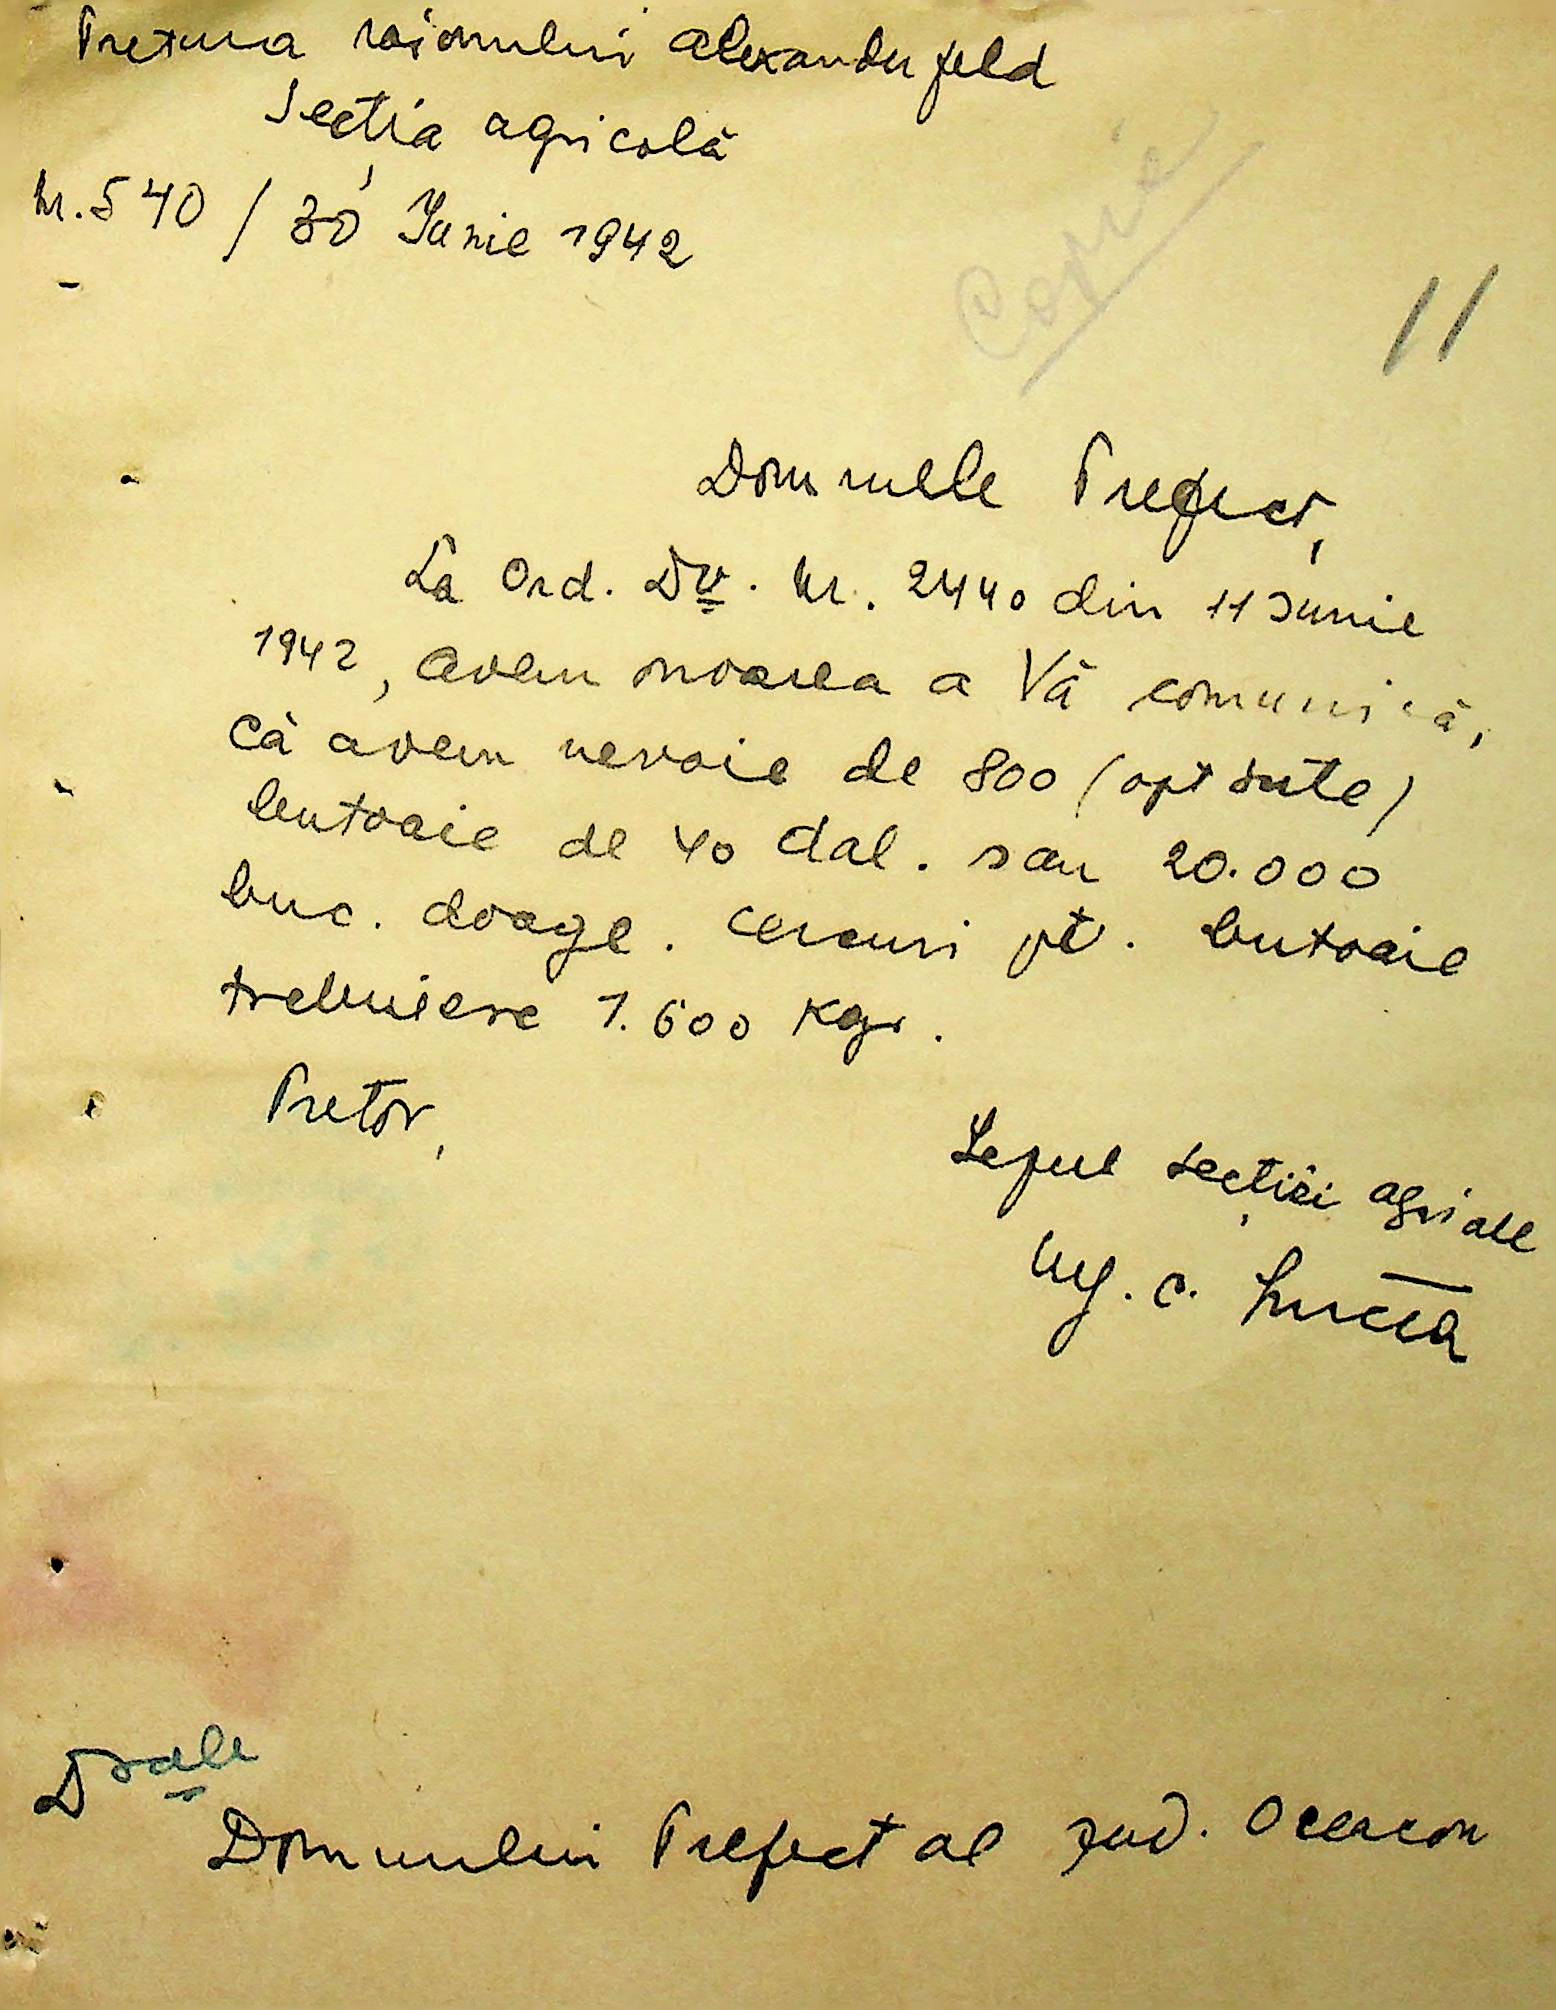 Pretura raionului Alexanderfeld
Secția agricolă
Nr. 540 / 30 Iunie 1942
Copie
11
Domnule Prefect,
La Ord. Dv. Nr. 2440 din 11 Iunie
1942, avem onoarea a Vă comunică,
că avem nevoie de 800 (opt sute)
butoaie de 40 dal. sau 20.000
buc. doage. cercuri pt. butoaie
trebuiesc 1.600 kgr.
Pretor,
Șeful secției agricole
Ing. C.
Dsale
Domnului Prefect al Jud. Oceacov